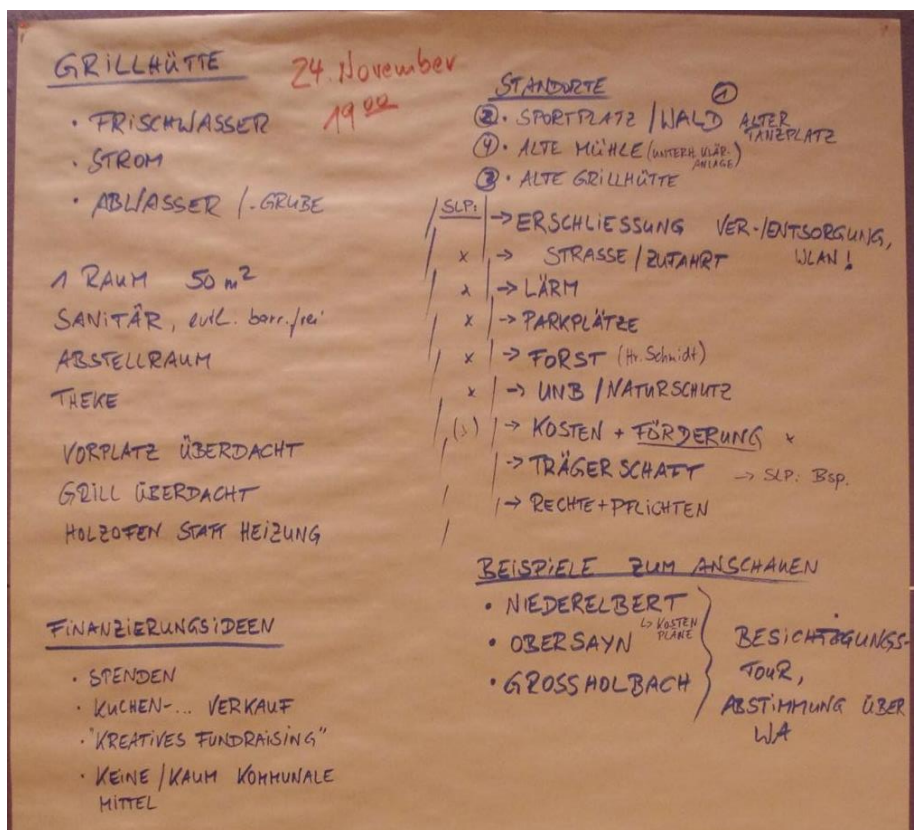 GRILLHÜTTE
24. November
19 00
• FRISCHWASSER
• STROM
• ABWASSER / -GRUBE
1 RAUM 50 m²
SANITÄR, evtl. barr.frei
ABSTELLRAUM
THEKE
VORPLATZ ÜBERDACHT
GRILL ÜBERDACHT
HOLZOFEN STATT HEIZUNG
FINANZIERUNGSIDEEN
• SPENDEN
• KUCHEN-... VERKAUF
• "KREATIVES FUNDRAISING"
• KEINE / KAUM KOMMUNALE
MITTEL
STANDORTE
② • SPORTPLATZ / WALD ① ALTER
TANZPLATZ
④ • ALTE MÜHLE (UNTERH. KLÄR-
ANLAGE)
③ • ALTE GRILLHÜTTE
SLP:
→ ERSCHLIESSUNG VER-/ENTSORGUNG,
WLAN!
x → STRASSE / ZUFAHRT
x → LÄRM
x → PARKPLÄTZE
x → FORST (Hr. Schmidt)
x → UNB / NATURSCHUTZ
→ KOSTEN + FÖRDERUNG x
→ TRÄGERSCHAFT → SLP: Bsp.
→ RECHTE + PFLICHTEN
BEISPIELE ZUM ANSCHAUEN
• NIEDERELBERT
↳ KOSTEN
PLÄNE
• OBERSAYN
• GROSSHOLBACH
BESICHTIGUNGS-
TOUR,
ABSTIMMUNG ÜBER
WA